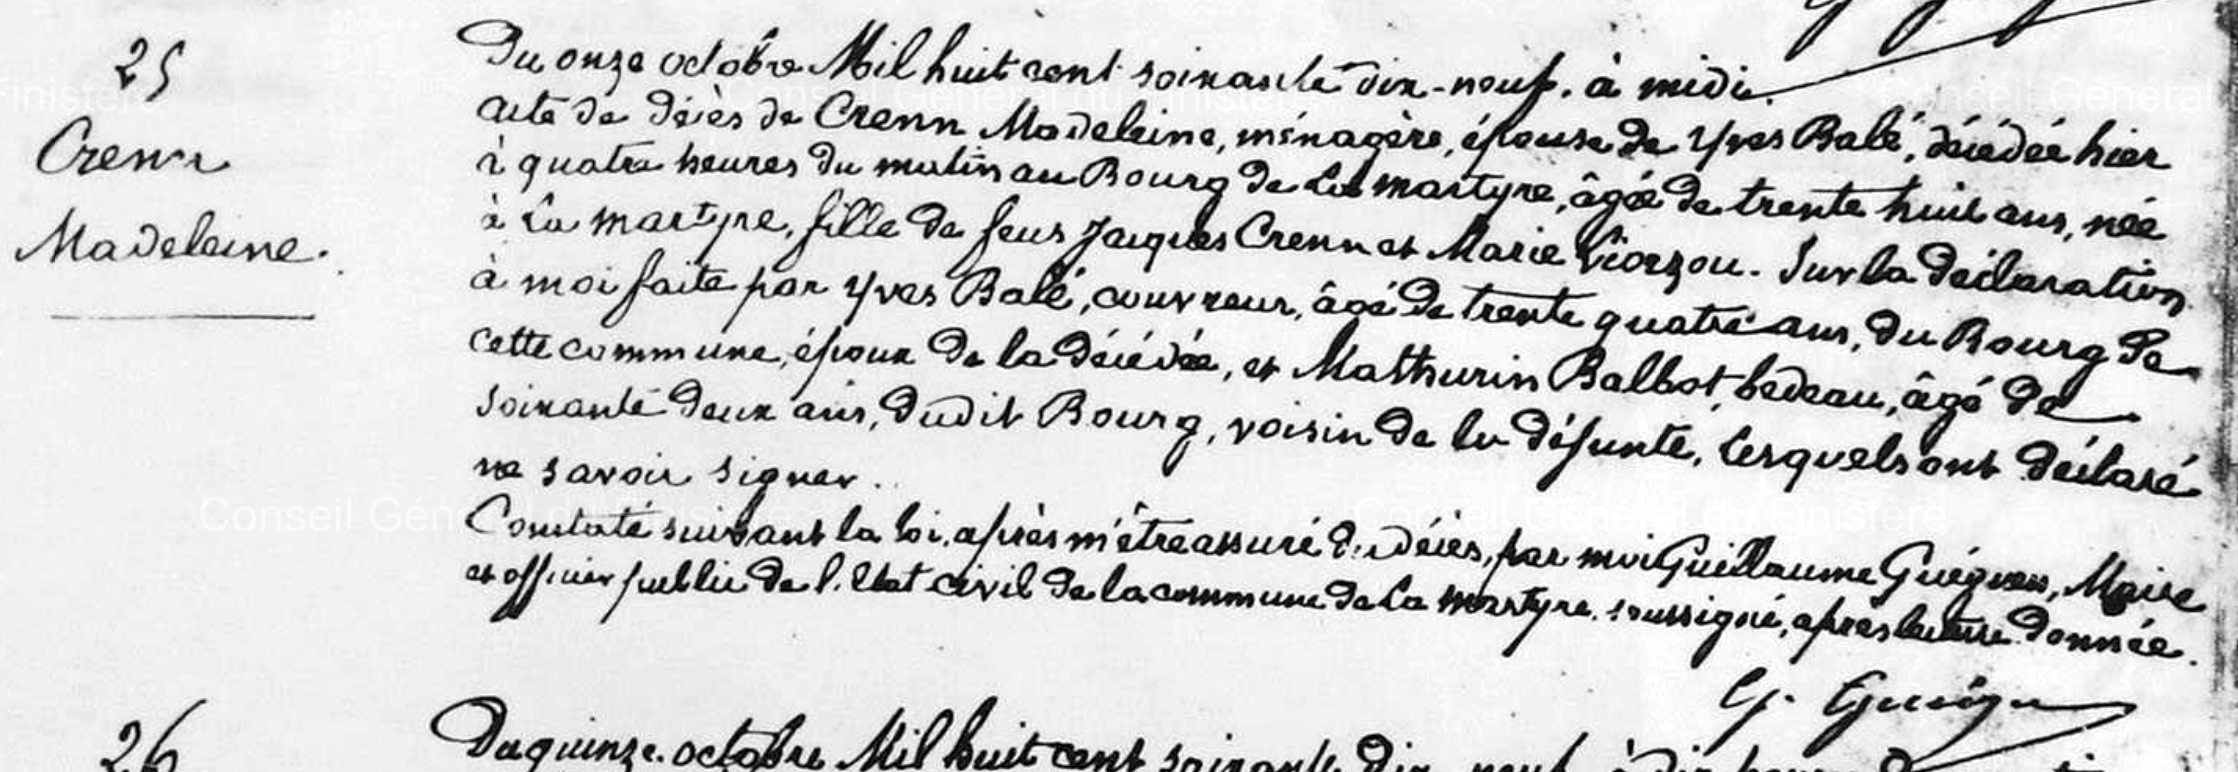 25
Crenn
Madeleine.
Du onze octobre Mil huit cent soixante dix-neuf. à midi.
acte de décès de Crenn Madeleine, ménagère, épouse de Yves Balé, décédée hier
à quatre heures du matin au Bourg de La martyre, âgée de trente huit ans, née
à La martyre, fille de feus Jacques Crenn et Marie . Sur la déclaration
à moi faite par Yves Balé, couvreur, âgé de trente quatre ans, du Bourg de
cette commune, époux de la décédée, et Mathurin Balbot, bedeau, âgé de
soixante deux ans, dudit Bourg, voisin de la défunte, lesquels ont déclaré
ne savoir signer.
Constaté suivant la loi, après m'être assuré du décès, par moi Guillaume Guéguen, Maire
et officier public de l'Etat civil de la commune de La martyre. soussigné, après lecture donnée.
G. Guégu
26
Du quinze octobre Mil huit cent soixante Dix-neuf à dix heures
Conseil Général du Finistère
Conseil Général du Finistère
Conseil Général du Finistère
Conseil Général